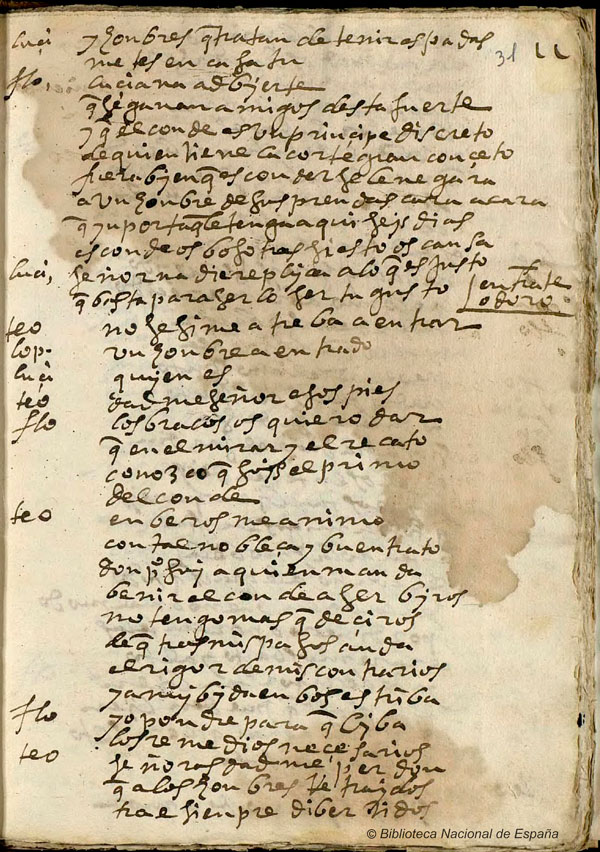 31
luçi y honbres q tratan de tenir espadas
me tes en casa tu
flo, luciana adbierte
q se ganan amigos desta suerte
y q el conde es un prinçipe discreto
de quien tiene la corte gran conçeto
fuera byen q esconderse le negara
a un honbre de sus prendas cara a cara
q ynporta q le tenga aqui seys dias
escondeos bosotras si esto os cansa
luçi, señor nadie replica a lo q es justo
q basta para serlo ser tu gusto
entra te
odoro
teo no se si me atreba a entrar
lop. un honbre a entrado
luçi quyen es
teo dadme señor esos pies
flo los braços os quiero dar
q en el mirar y el recato
conozco q soys el primo
del conde
teo en beros me animo
con tal nobleça y buen trato
don po soy a quien manda
benir el conde a serbyros
no tengo mas q deciros
de q tras mis pasos anda
el rigor de mis contrarios
y a mi byda en bos estriba
flo yo pondre para q byba
los remedios neçesarios
teo señoras dadme perdon
q a los honbres retraydos
trae sienpre dibertidos
© Biblioteca Nacional de España